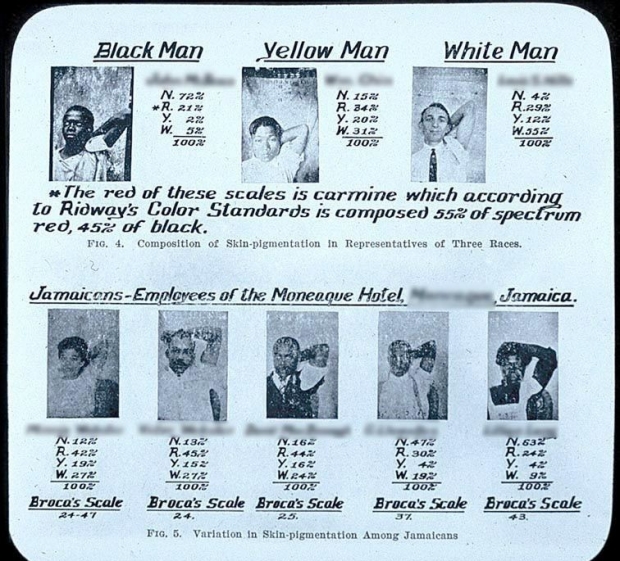 Black Man
Yellow Man
White Man
N. 72%
*R. 21%
Y. 2%
W. 5%
100%
N. 15%
R. 34%
Y. 20%
W. 31%
100%
N. 4%
R. 29%
Y. 12%
W. 55%
100%
*The red of these scales is carmine which according
to Ridway's Color Standards is composed 55% of spectrum
red, 45% of black.
FIG. 4. Composition of Skin-pigmentation in Representatives of Three Races.
Jamaicans-Employees of the Moneague Hotel, , Jamaica.
N. 12%
R. 42%
Y. 19%
W. 27%
100%
Broca's Scale
24-47
N. 13%
R. 45%
Y. 15%
W. 27%
100%
Broca's Scale
24.
N. 16%
R. 44%
Y. 16%
W. 24%
100%
Broca's Scale
25.
N. 47%
R. 30%
Y. 4%
W. 19%
100%
Broca's Scale
37.
N. 63%
R. 24%
Y. 4%
W. 9%
100%
Broca's Scale
43.
FIG. 5. Variation in Skin-pigmentation Among Jamaicans